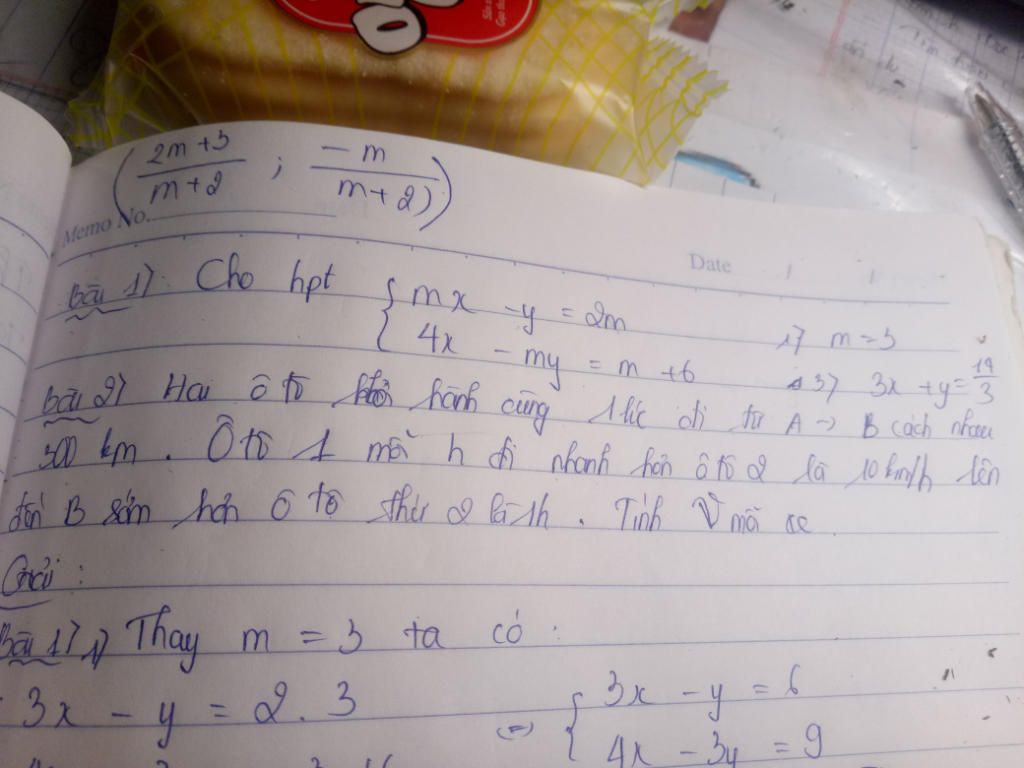 (2m+3/m+2 ; -m/m+2))
Memo No.
Date / /
Bài 1) Cho hpt { mx - y = 2m
4x - my = m + 6
1) m = 3
3) 3x + y = 19/3
Bài 2) Hai ô tô khởi hành cùng 1 lúc đi từ A → B cách nhau
300 km. Ô tô 1 mỗi h đi nhanh hơn ô tô 2 là 10km/h lên
đến B sớm hơn ô tô thứ 2 là 1h. Tính V mỗi xe
Giải:
Bài 1) 1) Thay m = 3 ta có:
3x - y = 2.3
(=) { 3x - y = 6
4x - 3y = 9